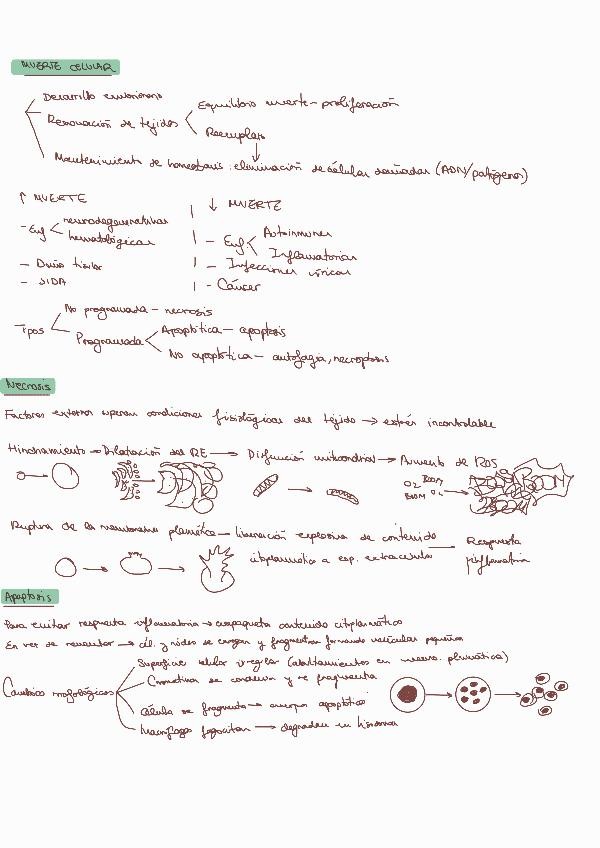 MUERTE CELULAR
Desarrollo embrionario
Renovación de tejidos
Equilibrio muerte - proliferación
Reemplazo
Mantenimiento de homeostasis: eliminación de células dañadas (ADN/patógenos)
↑ MUERTE
- Enf
neurodegenerativas
hematológicas
- Daño tisular
- SIDA
↓ MUERTE
- Enf.
Autoinmunes
Inflamatorias
- Infecciones víricas
- Cáncer
Tipos
No programada - necrosis
Programada
Apoptótica - apoptosis
No apoptótica - autofagia, necroptosis
Necrosis
Factores externos superan condiciones fisiológicas del tejido → estrés incontrolable
Hinchamiento → Dilatación del RE → Disfunción mitocondrial → Aumento de ROS
O2 BOOM
BOOM O2
Ruptura de la membrana plasmática - liberación explosiva de contenido
citoplasmático a esp. extracelular
Respuesta
inflamatoria
Apoptosis
Para evitar respuesta inflamatoria → empaqueta contenido citoplasmático
En vez de reventar → cél. y núcleo se encogen y fragmentan formando vesículas pequeñas
Cambios morfológicos
Superficie celular irregular (abultamientos en memb. plasmática)
Cromatina se condensa y se fragmenta
Célula se fragmenta → cuerpos apoptóticos
Macrófagos fagocitan → degradan en lisosomas